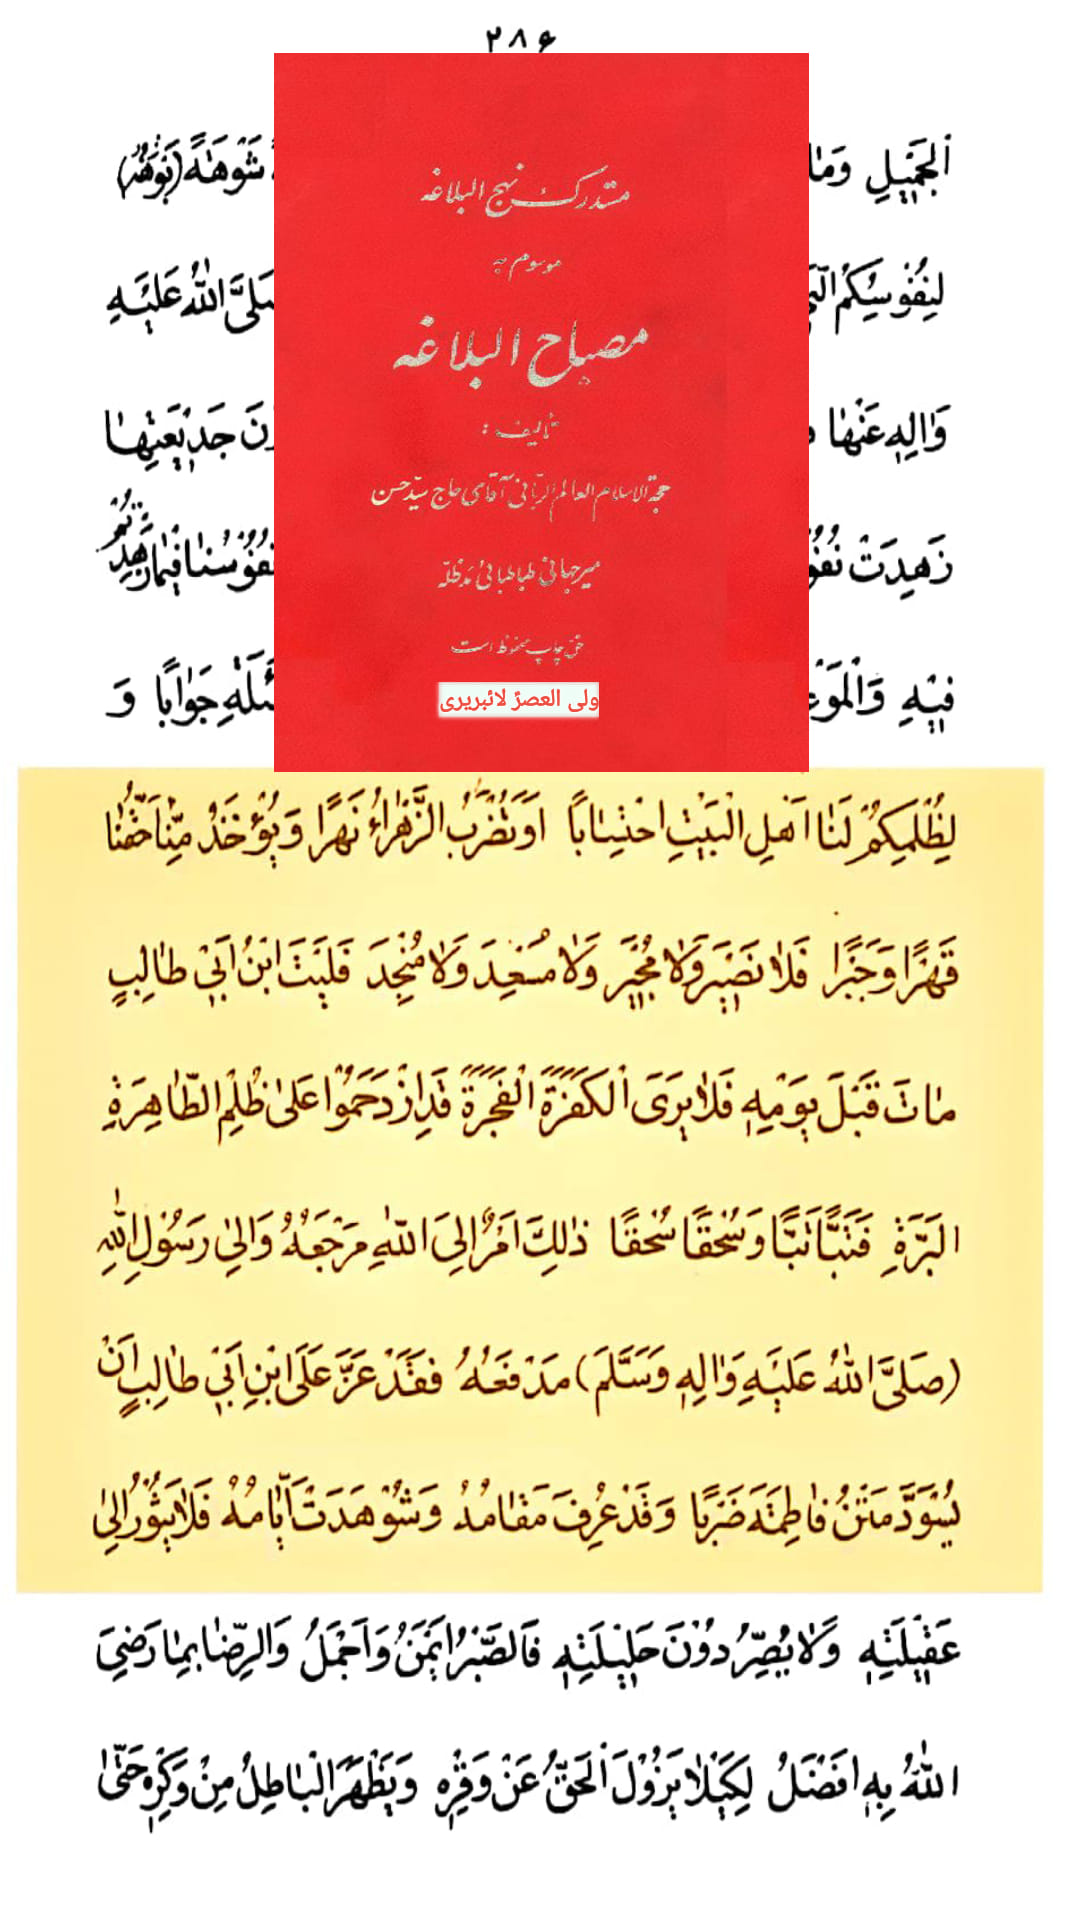 ۲۸۶
اَلْجَمیٖلِ وَمٰا شَوْهٰآءَ (نَوْهَدُ)
لِنُفُوسِکُمُ صَلَّی اللّٰهُ عَلَیْهِ
وَاٰلِهٖ عَنْهٰا جَدیٖعَتِهٰا
زَهِدَتْ نُفُوسُنٰا فیٖمٰا زَهِدْتُمْ
فیٖهِ وَالْمَوْ جَوٰابًا وَ
مستدرک نهج البلاغه
موسوم به
مصباح البلاغه
تألیف :
حجة الاسلام العالم الربّانی آقای حاج سیّد حسن
میرجهانی طباطبائی مدّ ظلّه
حق چاپ محفوظ است
ولی العصرؑ لائبریری
لِظُلْمِکُمْ لَنٰا اَهْلِ الْبَیْتِ احْتِسٰابًا اَوَتُضْرَبُ الزَّهْرٰاءُ نَهْرًا وَیُؤْخَذُ مِنّٰا حَقُّنٰا
قَهْرًا وَجَبْرًا فَلٰا نَصیٖرَ وَلٰا مُجیٖرَ وَلٰا مُسْعِدَ وَلٰا مُنْجِدَ فَلَیْتَ ابْنُ اَبیٖ طٰالِبٍ
مٰاتَ قَبْلَ یَوْمِهٖ فَلٰا یَرَی الْکَفَرَةَ الْفَجَرَةَ قَدِ ازْدَحَمُوا عَلیٰ ظُلْمِ الطّٰاهِرَةِ
الْبَرَّةِ فَتَبًّا تَبًّا وَسُحْقًا سُحْقًا ذٰلِکَ اَمْرٌ اِلَی اللّٰهِ مَرْجَعُهُ وَاِلیٰ رَسُولِ اللّٰهِ
(صَلَّی اللّٰهُ عَلَیْهِ وَاٰلِهٖ وَسَلَّمَ) مَدْفَعُهُ فَقَدْ عَزَّ عَلَی ابْنِ اَبیٖ طٰالِبٍ اَنْ
یُسْوَدَّ مَتْنُ فٰاطِمَةَ ضَرْبًا وَقَدْ عُرِفَ مَقٰامُهُ وَشُوهِدَتْ اَیّٰامُهُ فَلٰا یَثُورُ اِلیٰ
عَقیٖلَتِهٖ وَلٰا یُصِرُّ دُونَ حَلیٖلَتِهٖ فَالصَّبْرُ اَیْمَنُ وَاَجْمَلُ وَالرِّضٰا بِمٰا رَضِیَ
اللّٰهُ بِهٖ اَفْضَلُ لِکَیْلٰا یَزُولَ الْحَقُّ عَنْ وَقْرِهٖ وَیَظْهَرَ الْبٰاطِلُ مِنْ وَکْرِهٖ حَتّیٰ